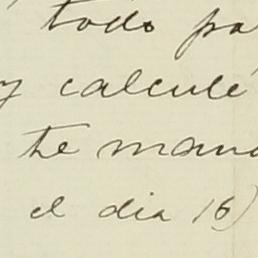 todo pa
y calculé
te mand
el dia 16)